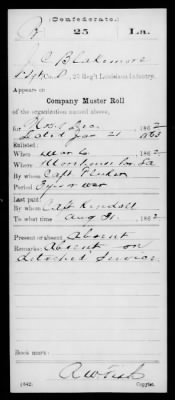 (Confederate.)
B 25 La.
J C Blakemore
Co. D, 25 Reg't Louisiana Infantry.
Appears on
Company Muster Roll
of the organization named above,
for Nov & Dec, 1862
dated Jan 21 1863
Enlisted:
When Mar 6, 1862
Where Morehouse La
By whom Capt
Period 3 yrs or war
Last paid:
By whom Capt Kendall
To what time Aug 31, 1862
Present or absent Absent
Remarks: Absent on
detached service
Book mark:
(642) Copyist.